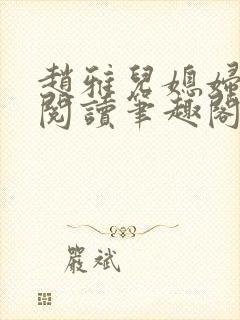 趙雅兒媳婦
閱讀筆趣閣
嚴斌